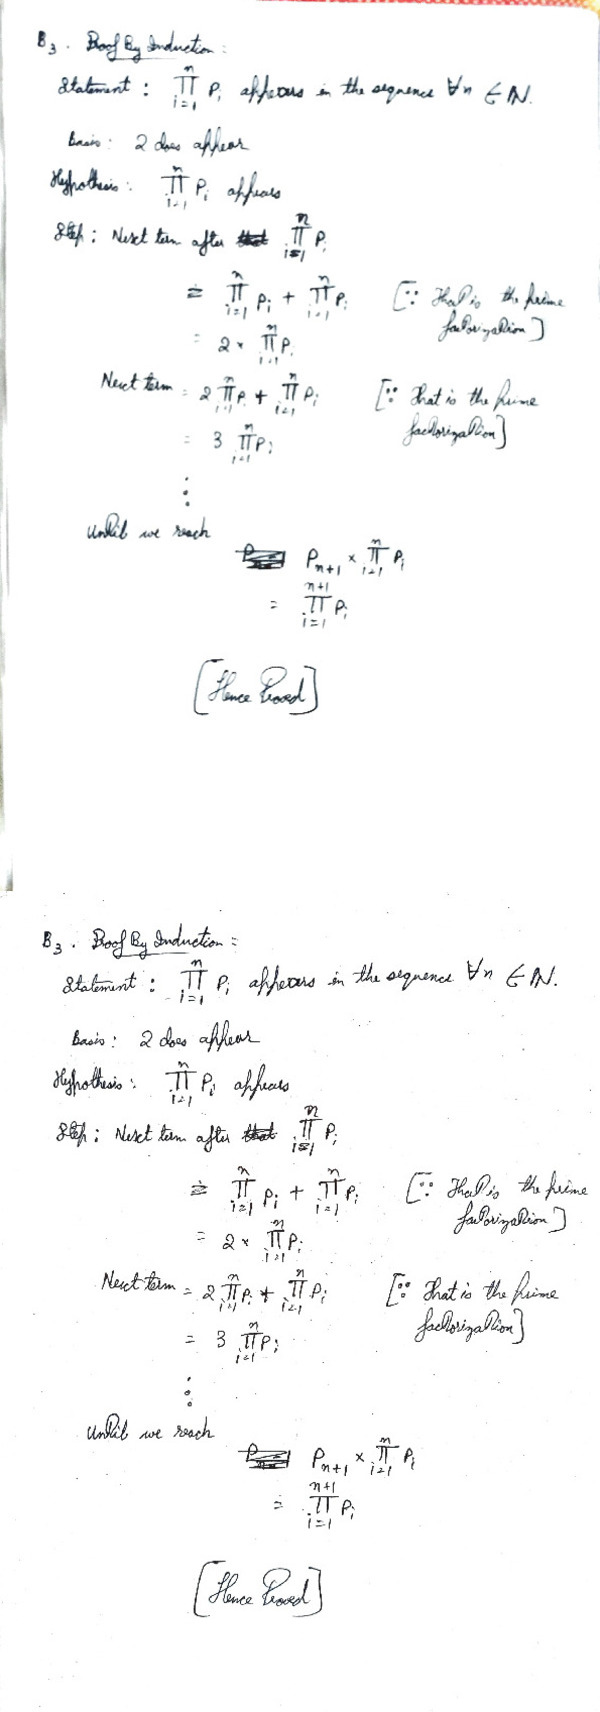 B3. Proof By Induction:
Statement: n∏i=1 Pi appears in the sequence ∀n ∈ ℕ.
Basis: 2 does appear
Hypothesis: n∏i=1 Pi appears
Step: Next term after that n∏i=1 Pi
= n∏i=1 Pi + n∏i=1 Pi [∵ That is the prime
factorization]
= 2 × n∏i=1 Pi
Next term = 2 n∏i=1 Pi + n∏i=1 Pi [∵ That is the prime
factorization]
= 3 n∏i=1 Pi
⋮
Until we reach
Pn+1 × n∏i=1 Pi
= n+1∏i=1 Pi
[Hence Proved]
B3. Proof By Induction:
Statement: n∏i=1 Pi appears in the sequence ∀n ∈ ℕ.
Basis: 2 does appear
Hypothesis: n∏i=1 Pi appears
Step: Next term after that n∏i=1 Pi
= n∏i=1 Pi + n∏i=1 Pi [∵ That is the prime
factorization]
= 2 × n∏i=1 Pi
Next term = 2 n∏i=1 Pi + n∏i=1 Pi [∵ That is the prime
factorization]
= 3 n∏i=1 Pi
⋮
Until we reach
Pn+1 × n∏i=1 Pi
= n+1∏i=1 Pi
[Hence Proved]